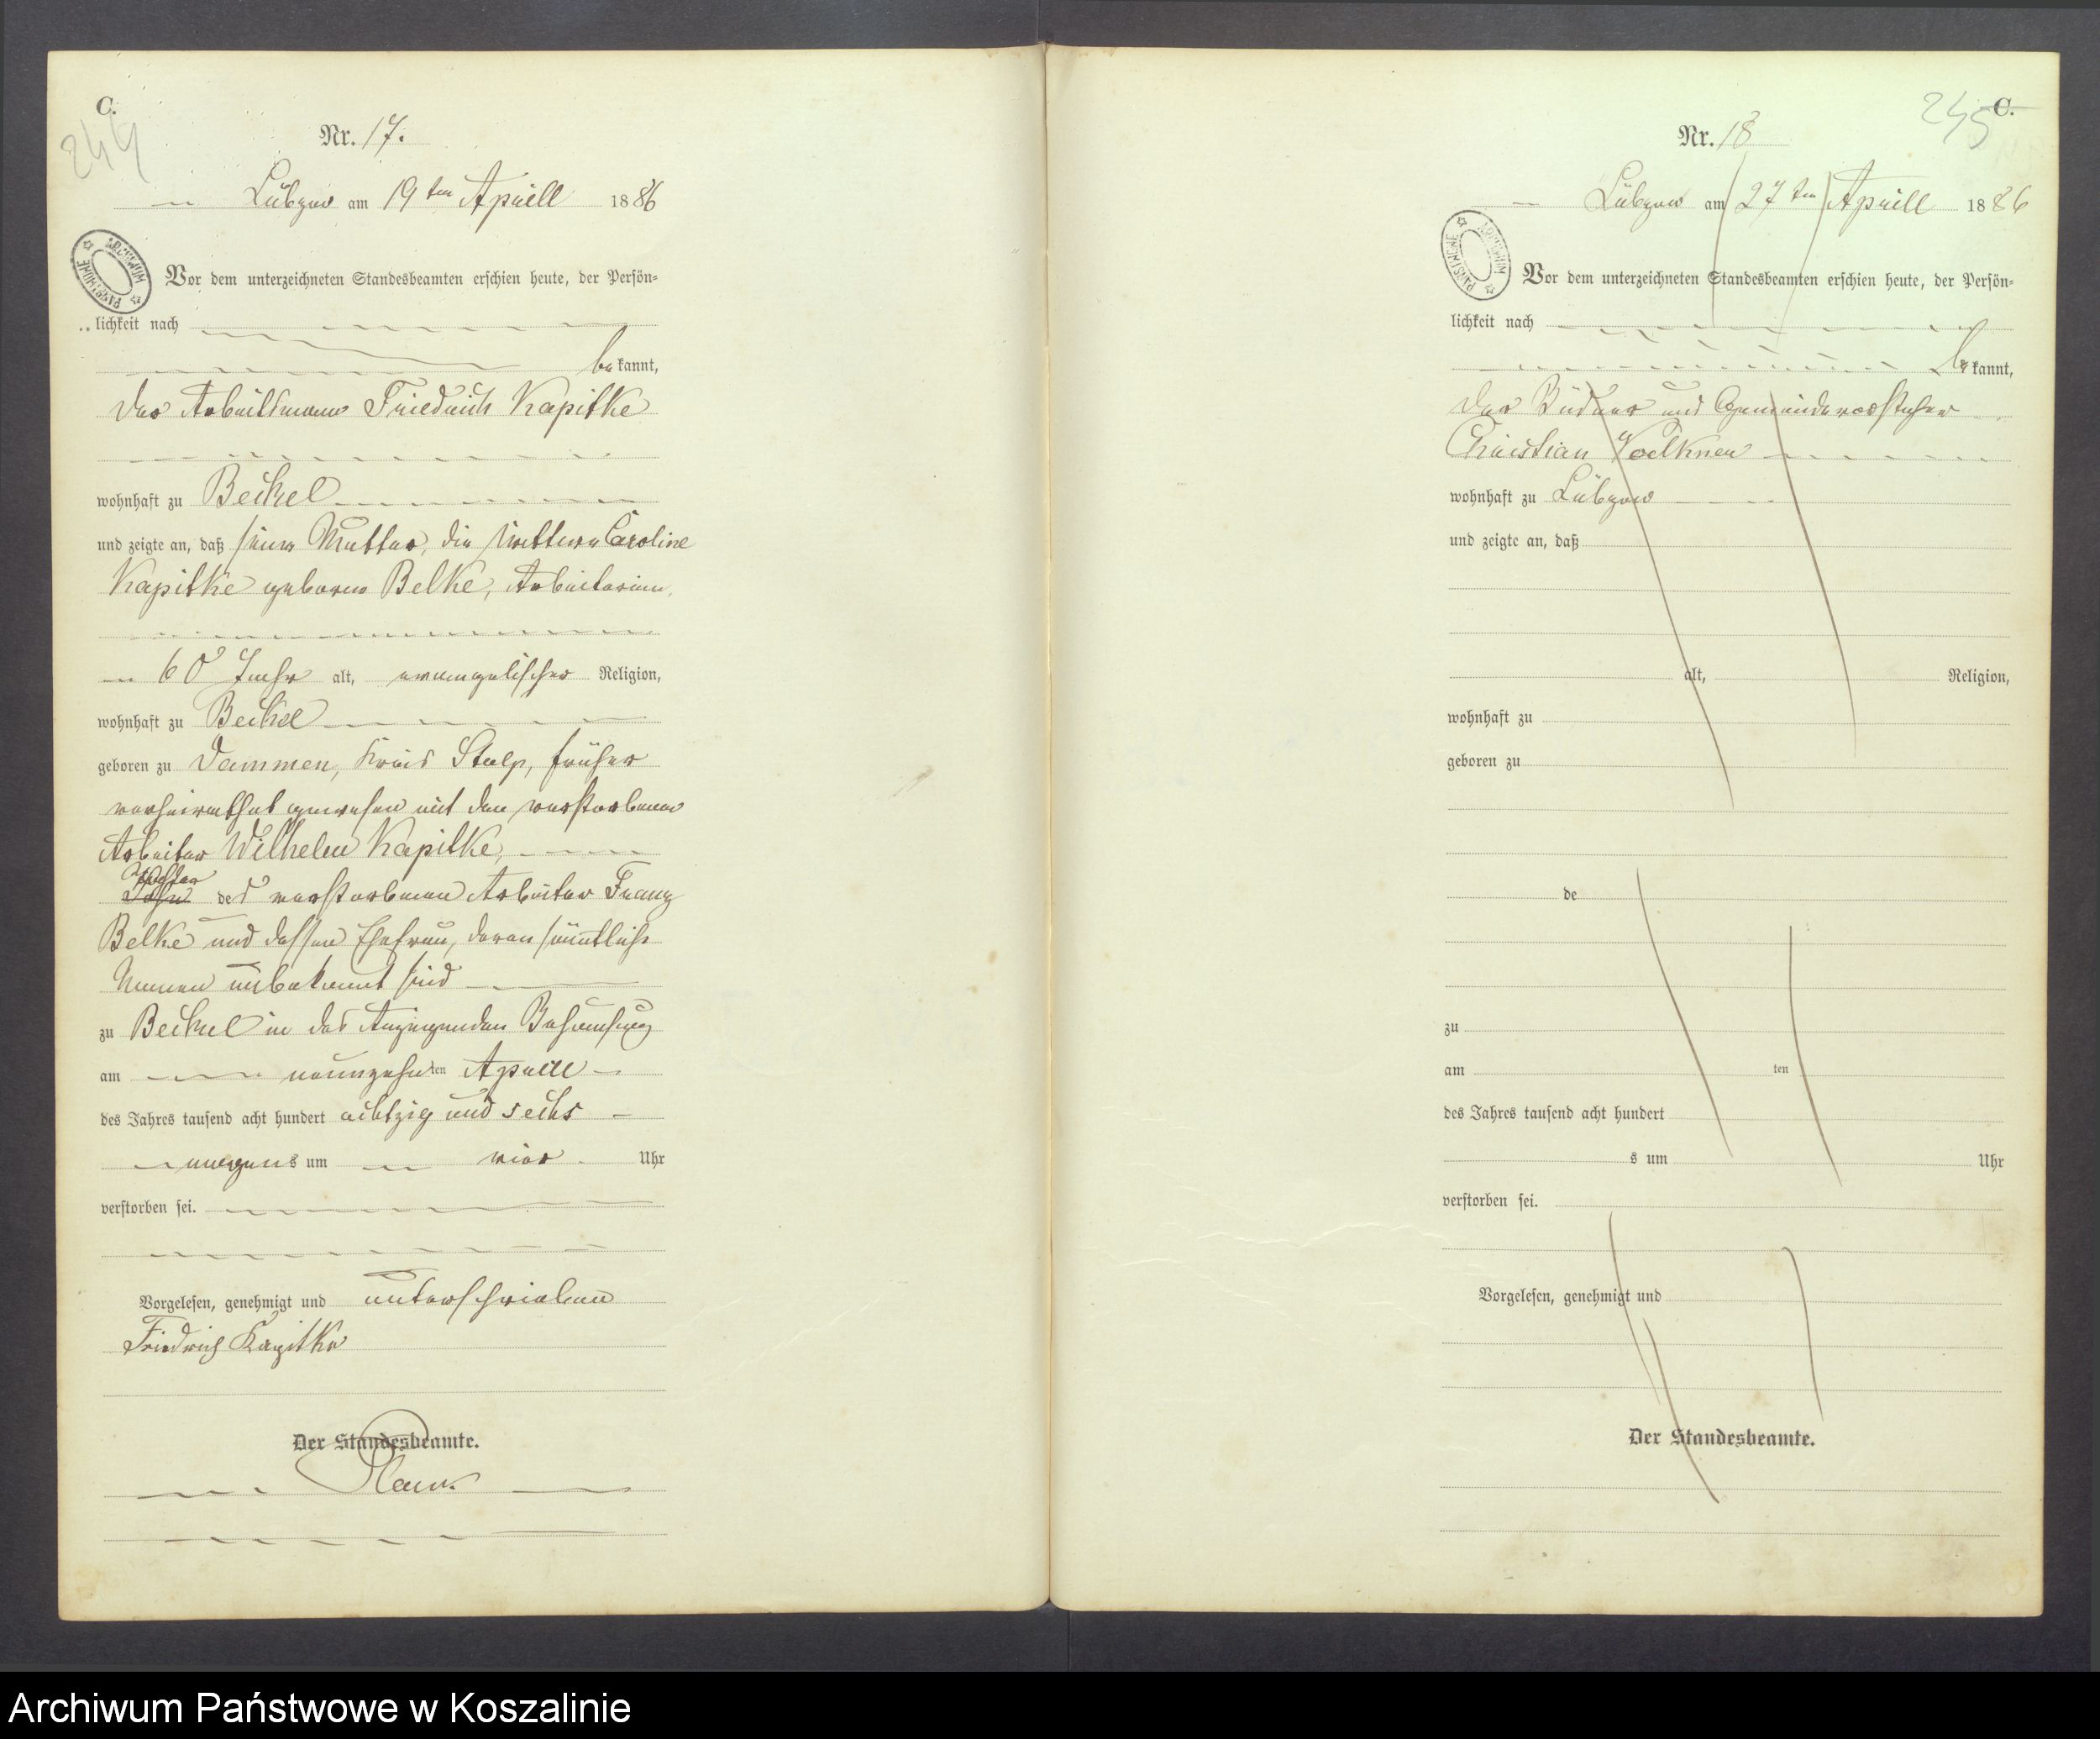 C.
244
Nr. 17.
Lübzow am 19ten Aprill 1886
ARCHIWUM PAŃSTWOWE
Vor dem unterzeichneten Standesbeamten erschien heute, der Persön-
lichkeit nach
bekannt,
der Arbeitsmann Friedrich Kapitke
wohnhaft zu Beckel
und zeigte an, daß seine Mutter, die Wittwe Caroline
Kapitke geborne Belke, Arbeiterinn,
60 Jahr alt, evangelischer Religion,
wohnhaft zu Beckel
geboren zu Dammen, Kreis Stolp, früher
verheirathet gewesen mit den verstorbenen
Arbeiter Wilhelm Kapitke,
Tochter
Sohn des verstorbenen Arbeiter Franz
Belke und dessen Ehefrau, deren sämtliche
Namen unbekannt sind
zu Beckel in des Anzeigenden Behausung
am neunzehnten Aprill
des Jahres tausend acht hundert achtzig und sechs
morgens um vier Uhr
verstorben sei.
Vorgelesen, genehmigt und unterschrieben
Friedrich Kapitke
Der Standesbeamte.
C.
245
Nr. 18
Lübzow am 27ten Aprill 1886
ARCHIWUM PAŃSTWOWE
Vor dem unterzeichneten Standesbeamten erschien heute, der Persön-
lichkeit nach
bekannt,
der Büdner und Gemeindevorsteher
Christian Voelkner
wohnhaft zu Lübzow
und zeigte an, daß
alt, Religion,
wohnhaft zu
geboren zu
de
zu
am ten
des Jahres tausend acht hundert
s um Uhr
verstorben sei.
Vorgelesen, genehmigt und
Der Standesbeamte.
Archiwum Państwowe w Koszalinie